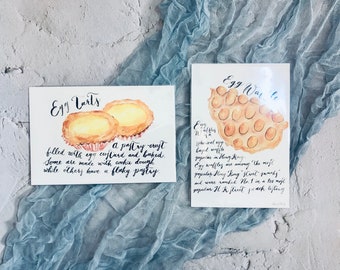 Egg Tarts
A pastry crust
filled with egg custard and baked.
Some are made with cookie dough
while others have a flaky pastry.
Egg
Egg
Waffles
egg
based waffle
popular in Hong Kong.
Egg waffles are among the most
popular Hong Kong street snacks
and were ranked No. 1 in a
popular H.K. street snack listing